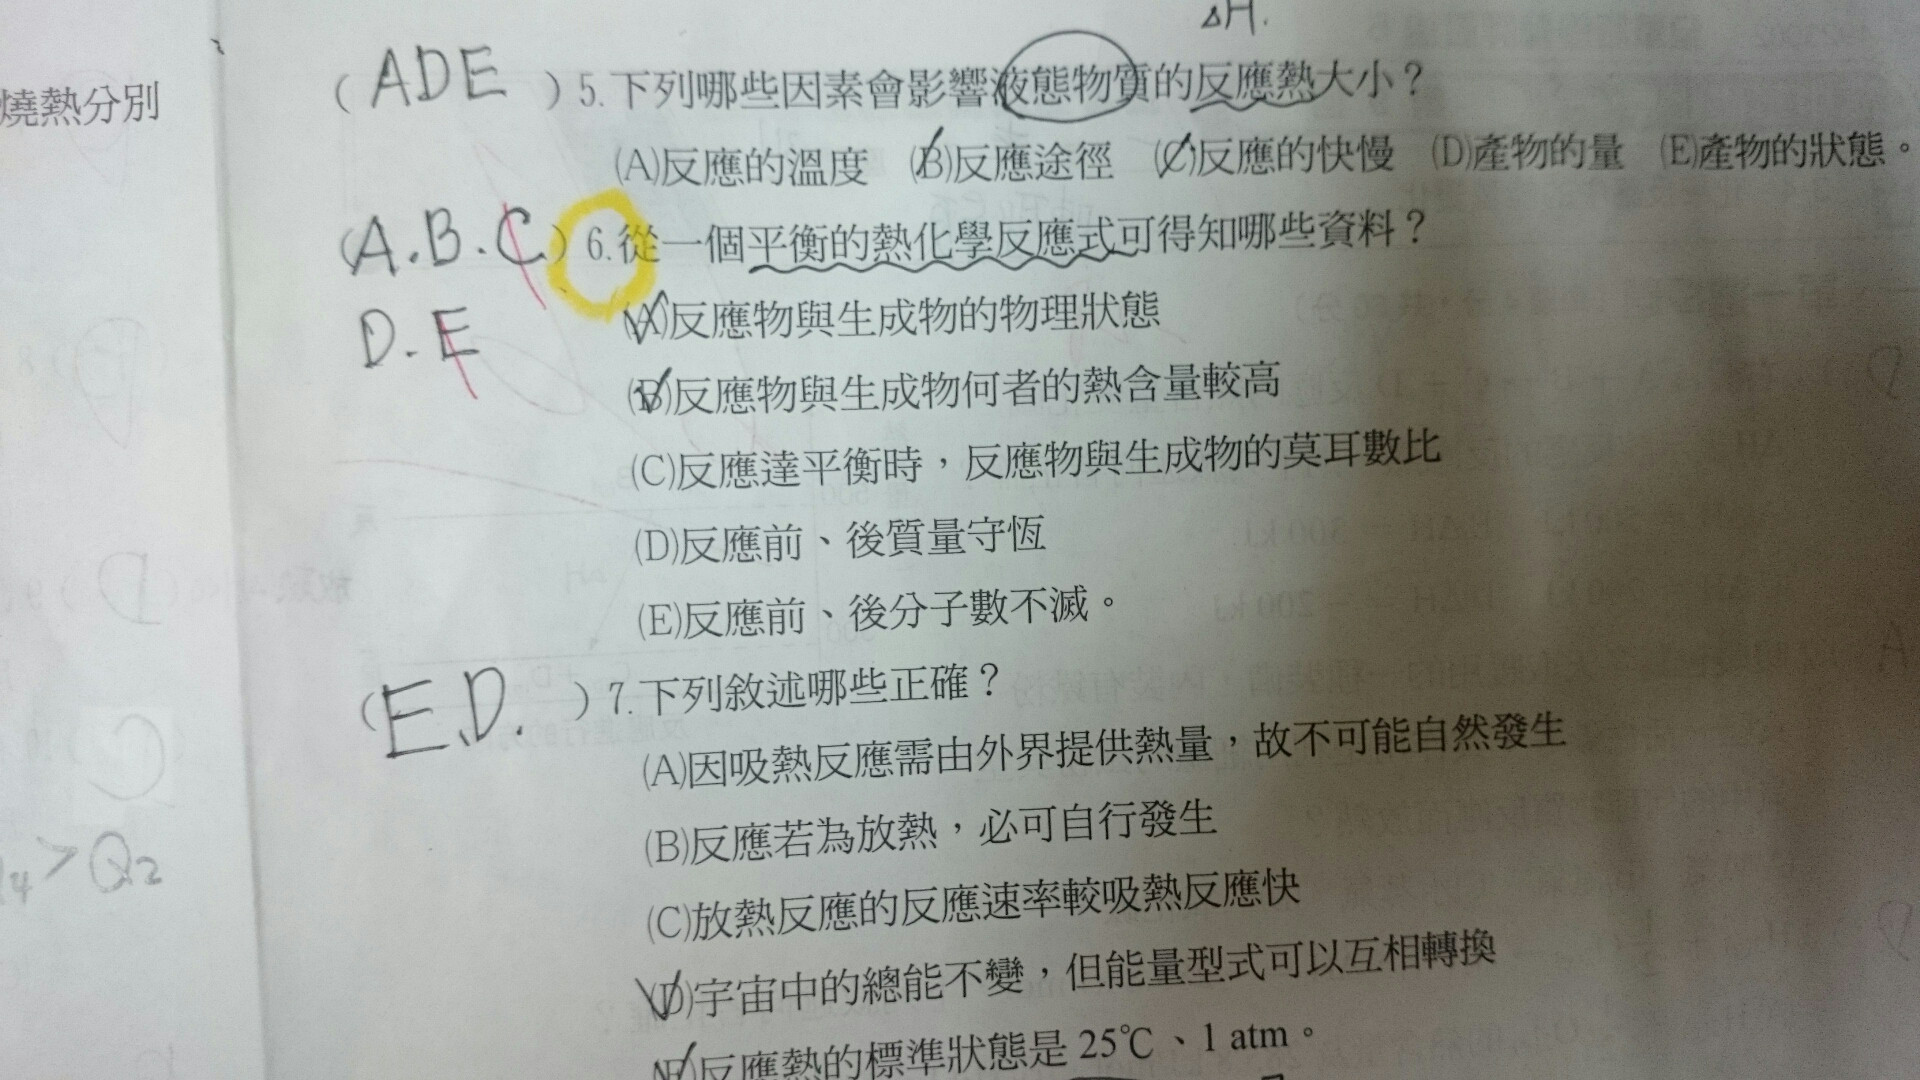 ΔH.
燒熱分別
( ADE ) 5. 下列哪些因素會影響液態物質的反應熱大小？
(A)反應的溫度 (B)反應途徑 (C)反應的快慢 (D)產物的量 (E)產物的狀態。
(A.B.C) 6. 從一個平衡的熱化學反應式可得知哪些資料？
D.E
(A)反應物與生成物的物理狀態
(B)反應物與生成物何者的熱含量較高
(C)反應達平衡時，反應物與生成物的莫耳數比
(D)反應前、後質量守恆
(E)反應前、後分子數不滅。
(E.D.) 7. 下列敘述哪些正確？
(A)因吸熱反應需由外界提供熱量，故不可能自然發生
(B)反應若為放熱，必可自行發生
(C)放熱反應的反應速率較吸熱反應快
(D)宇宙中的總能不變，但能量型式可以互相轉換
(E)反應熱的標準狀態是 25℃、1 atm。
4 > Q2